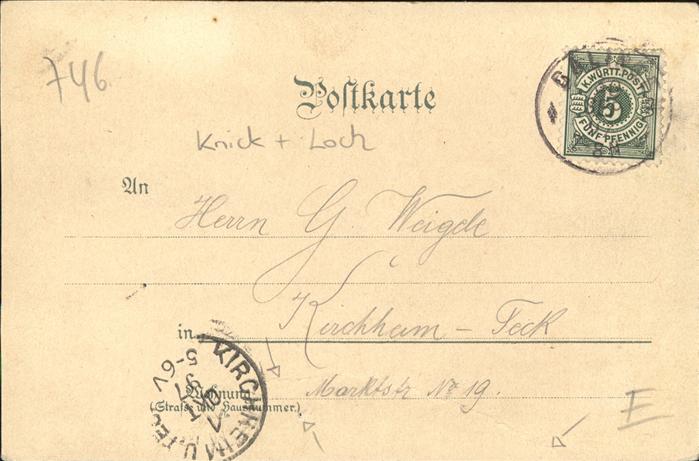 746
Postkarte
K. WÜRTT. POST
5
FÜNF PFENNIG
Knick + Loch
An
Herrn G. Weigele
in Kirchheim - Teck
KIRCHHEIM U. TECK
5-6
Wohnung
(Straße und Hausnummer.)
Marktstr No 19.
E